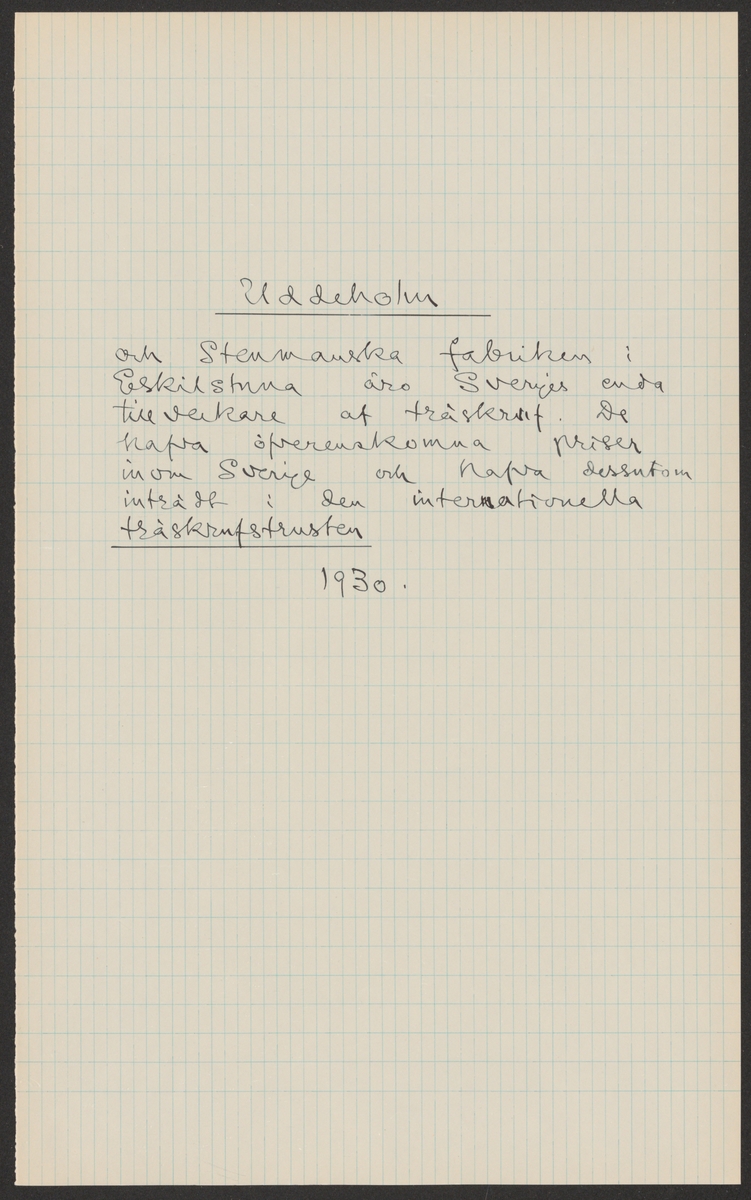 Uddeholm
och Stenmanska fabriken i
Eskilstuna äro Sveriges enda
tillverkare af träskruf. De
hafva öfverenskomna priser
inom Sverige och hafva dessutom
inträdt i den internationella
träskrufstrusten
1930.